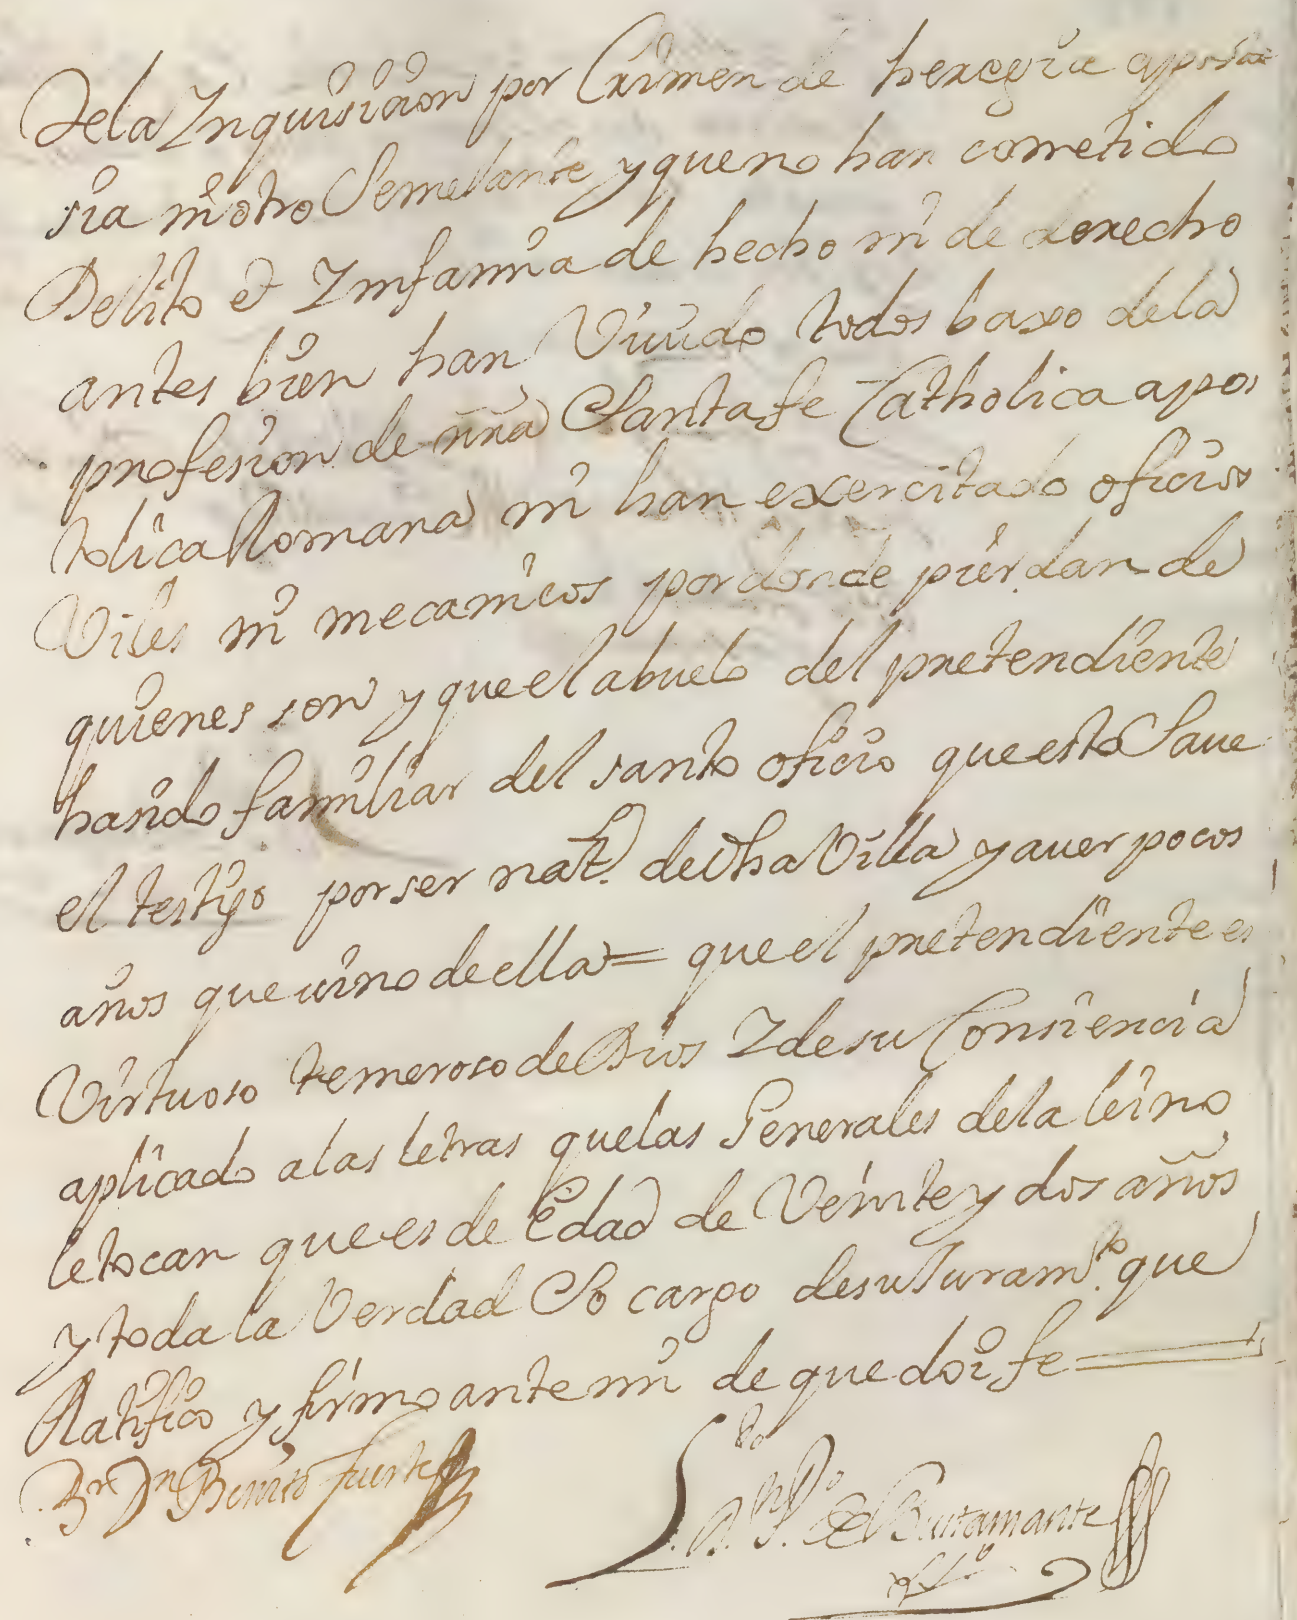 dela Inquisicion por Crimen de heregia aposta
sia ni otro Semelante y que no han cometido
Delito et Imfamia de hecho ni de derecho
antes bien han Viuido todos baxo dela
profesion de nña Santa fe Catholica apos
tolica Romana ni han exercitado oficios
Viles ni mecanicos por donde pierdan de
quienes son y que el abuelo del pretendiente
ha sido familiar del santo oficio que esto Saue
el testigo por ser natl. de dha Villa y auer pocos
años que uino de ella = que el pretendiente es
Virtuoso temeroso de Dios I de su Consiencia
aplicado a las letras que las Generales de la lei no
le tocan que es de Edad de Veinte y dos años
y toda la Verdad So cargo de su Juramto. que
Ratifico y firmo ante mi de que doi fe
Br. Dn Benito fuertes
Ldo Dn. Po. de Bustamante